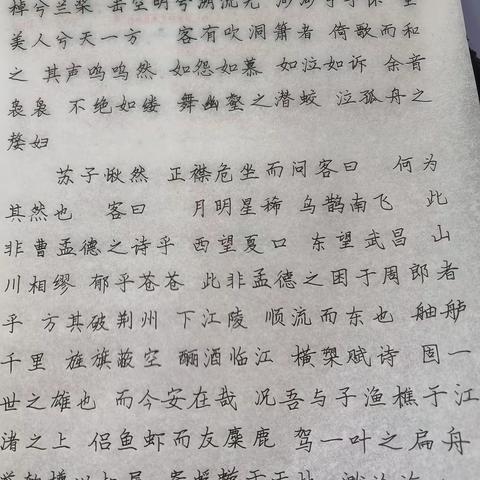 棹兮兰桨 击空明兮溯流光 渺渺兮于怀 望
美人兮天一方 客有吹洞箫者 倚歌而和
之 其声呜呜然 如怨如慕 如泣如诉 余音
袅袅 不绝如缕 舞幽壑之潜蛟 泣孤舟之
嫠妇
苏子愀然 正襟危坐而问客曰 何为
其然也 客曰 月明星稀 乌鹊南飞 此
非曹孟德之诗乎 西望夏口 东望武昌 山
川相缪 郁乎苍苍 此非孟德之困于周郎者
乎 方其破荆州 下江陵 顺流而东也 舳舻
千里 旌旗蔽空 酾酒临江 横槊赋诗 固一
世之雄也 而今安在哉 况吾与子渔樵于江
渚之上 侣鱼虾而友麋鹿 驾一叶之扁舟